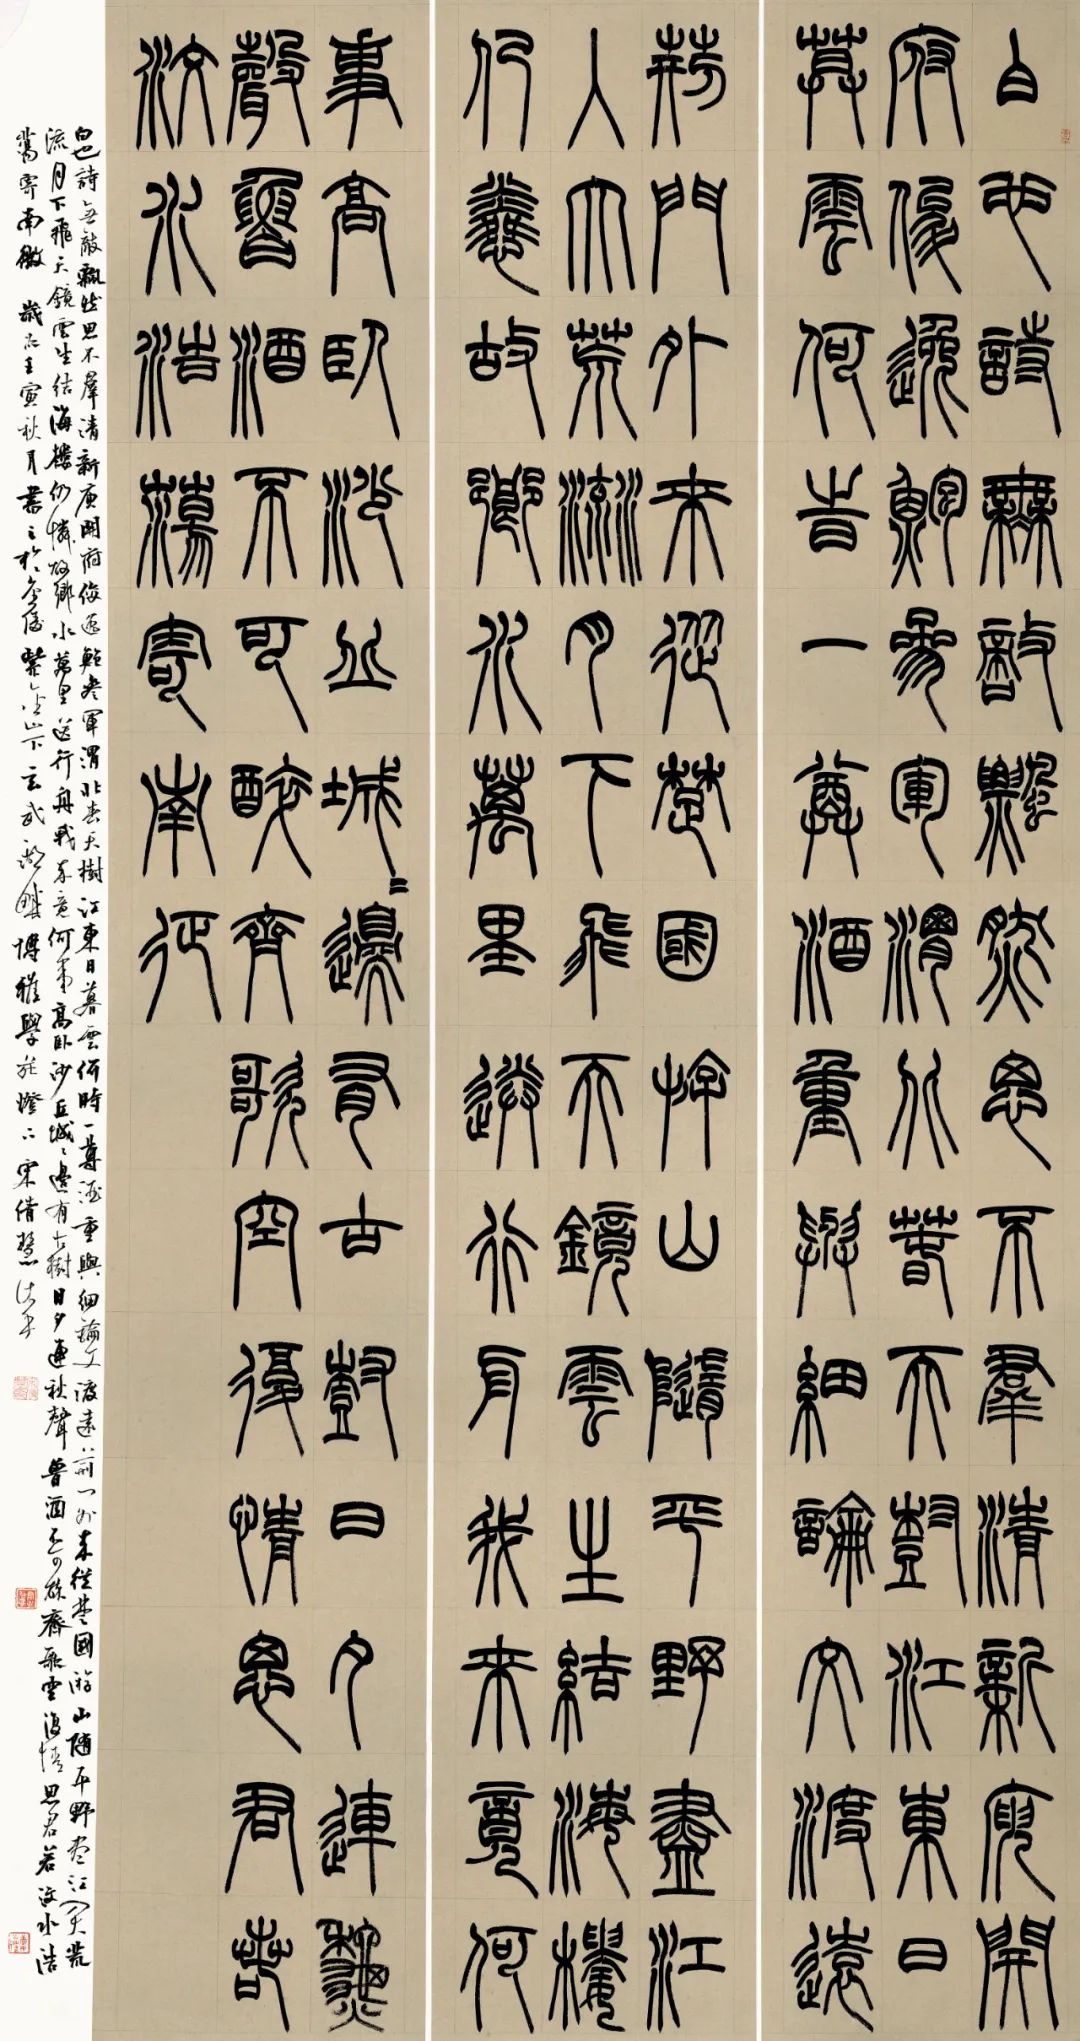 白也詩無敵飄然思不羣清新庾開
府俊逸鮑參軍渭北春天樹江東日
暮雲何時一尊酒重與細論文渡遠
荊門外來從楚國游山隨平野盡江
入大荒流月下飛天鏡雲生結海樓
仍憐故鄉水萬里送行舟我來竟何
事高臥沙丘城〻邊有古樹日夕連秋
聲魯酒不可醉齊歌空復情思君若
汶水浩蕩寄南征
白也詩無敵飄然思不羣清新庾開府俊逸鮑參軍渭北春天樹江東日暮雲何時一尊酒重與細論文渡遠荊門外來從楚國游山隨平野盡江入大荒
流月下飛天鏡雲生結海樓仍憐故鄉水萬里送行舟我來竟何事高臥沙丘城〻邊有古樹日夕連秋聲魯酒不可醉齊歌空復情思君若汶水浩
蕩寄南徵 歲次壬寅秋月書之於金陵紫金山下玄武湖畔博雅學苑燈下宋倩慧